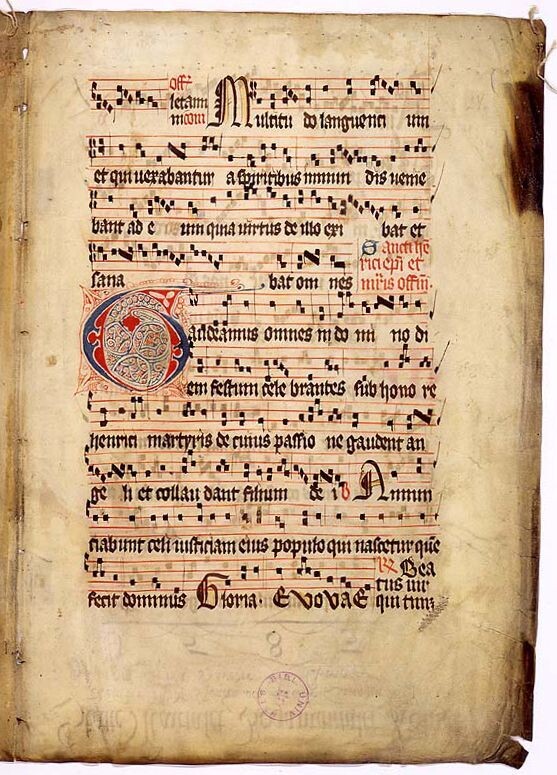 Off
letam
in com Multitu do languenti um
et qui uexabantur a spiritibus inmun dis uenie
bant ad e um quia uirtus de illo exi bat et
sana bat om nes
Sancti he
rici epi et
mris offm.
Gaudeamus omnes in do mi no di
em festum cele brantes sub hono re
henrici martyris de cuius passio ne gaudent an
ge li et collau dant filium de i V Annun
ciabunt celi iusticiam eius populo qui nascetur que
fecit dominus Gloria. Evovae
Rx Bea
tus uir
qui tim
BIBL UNIV